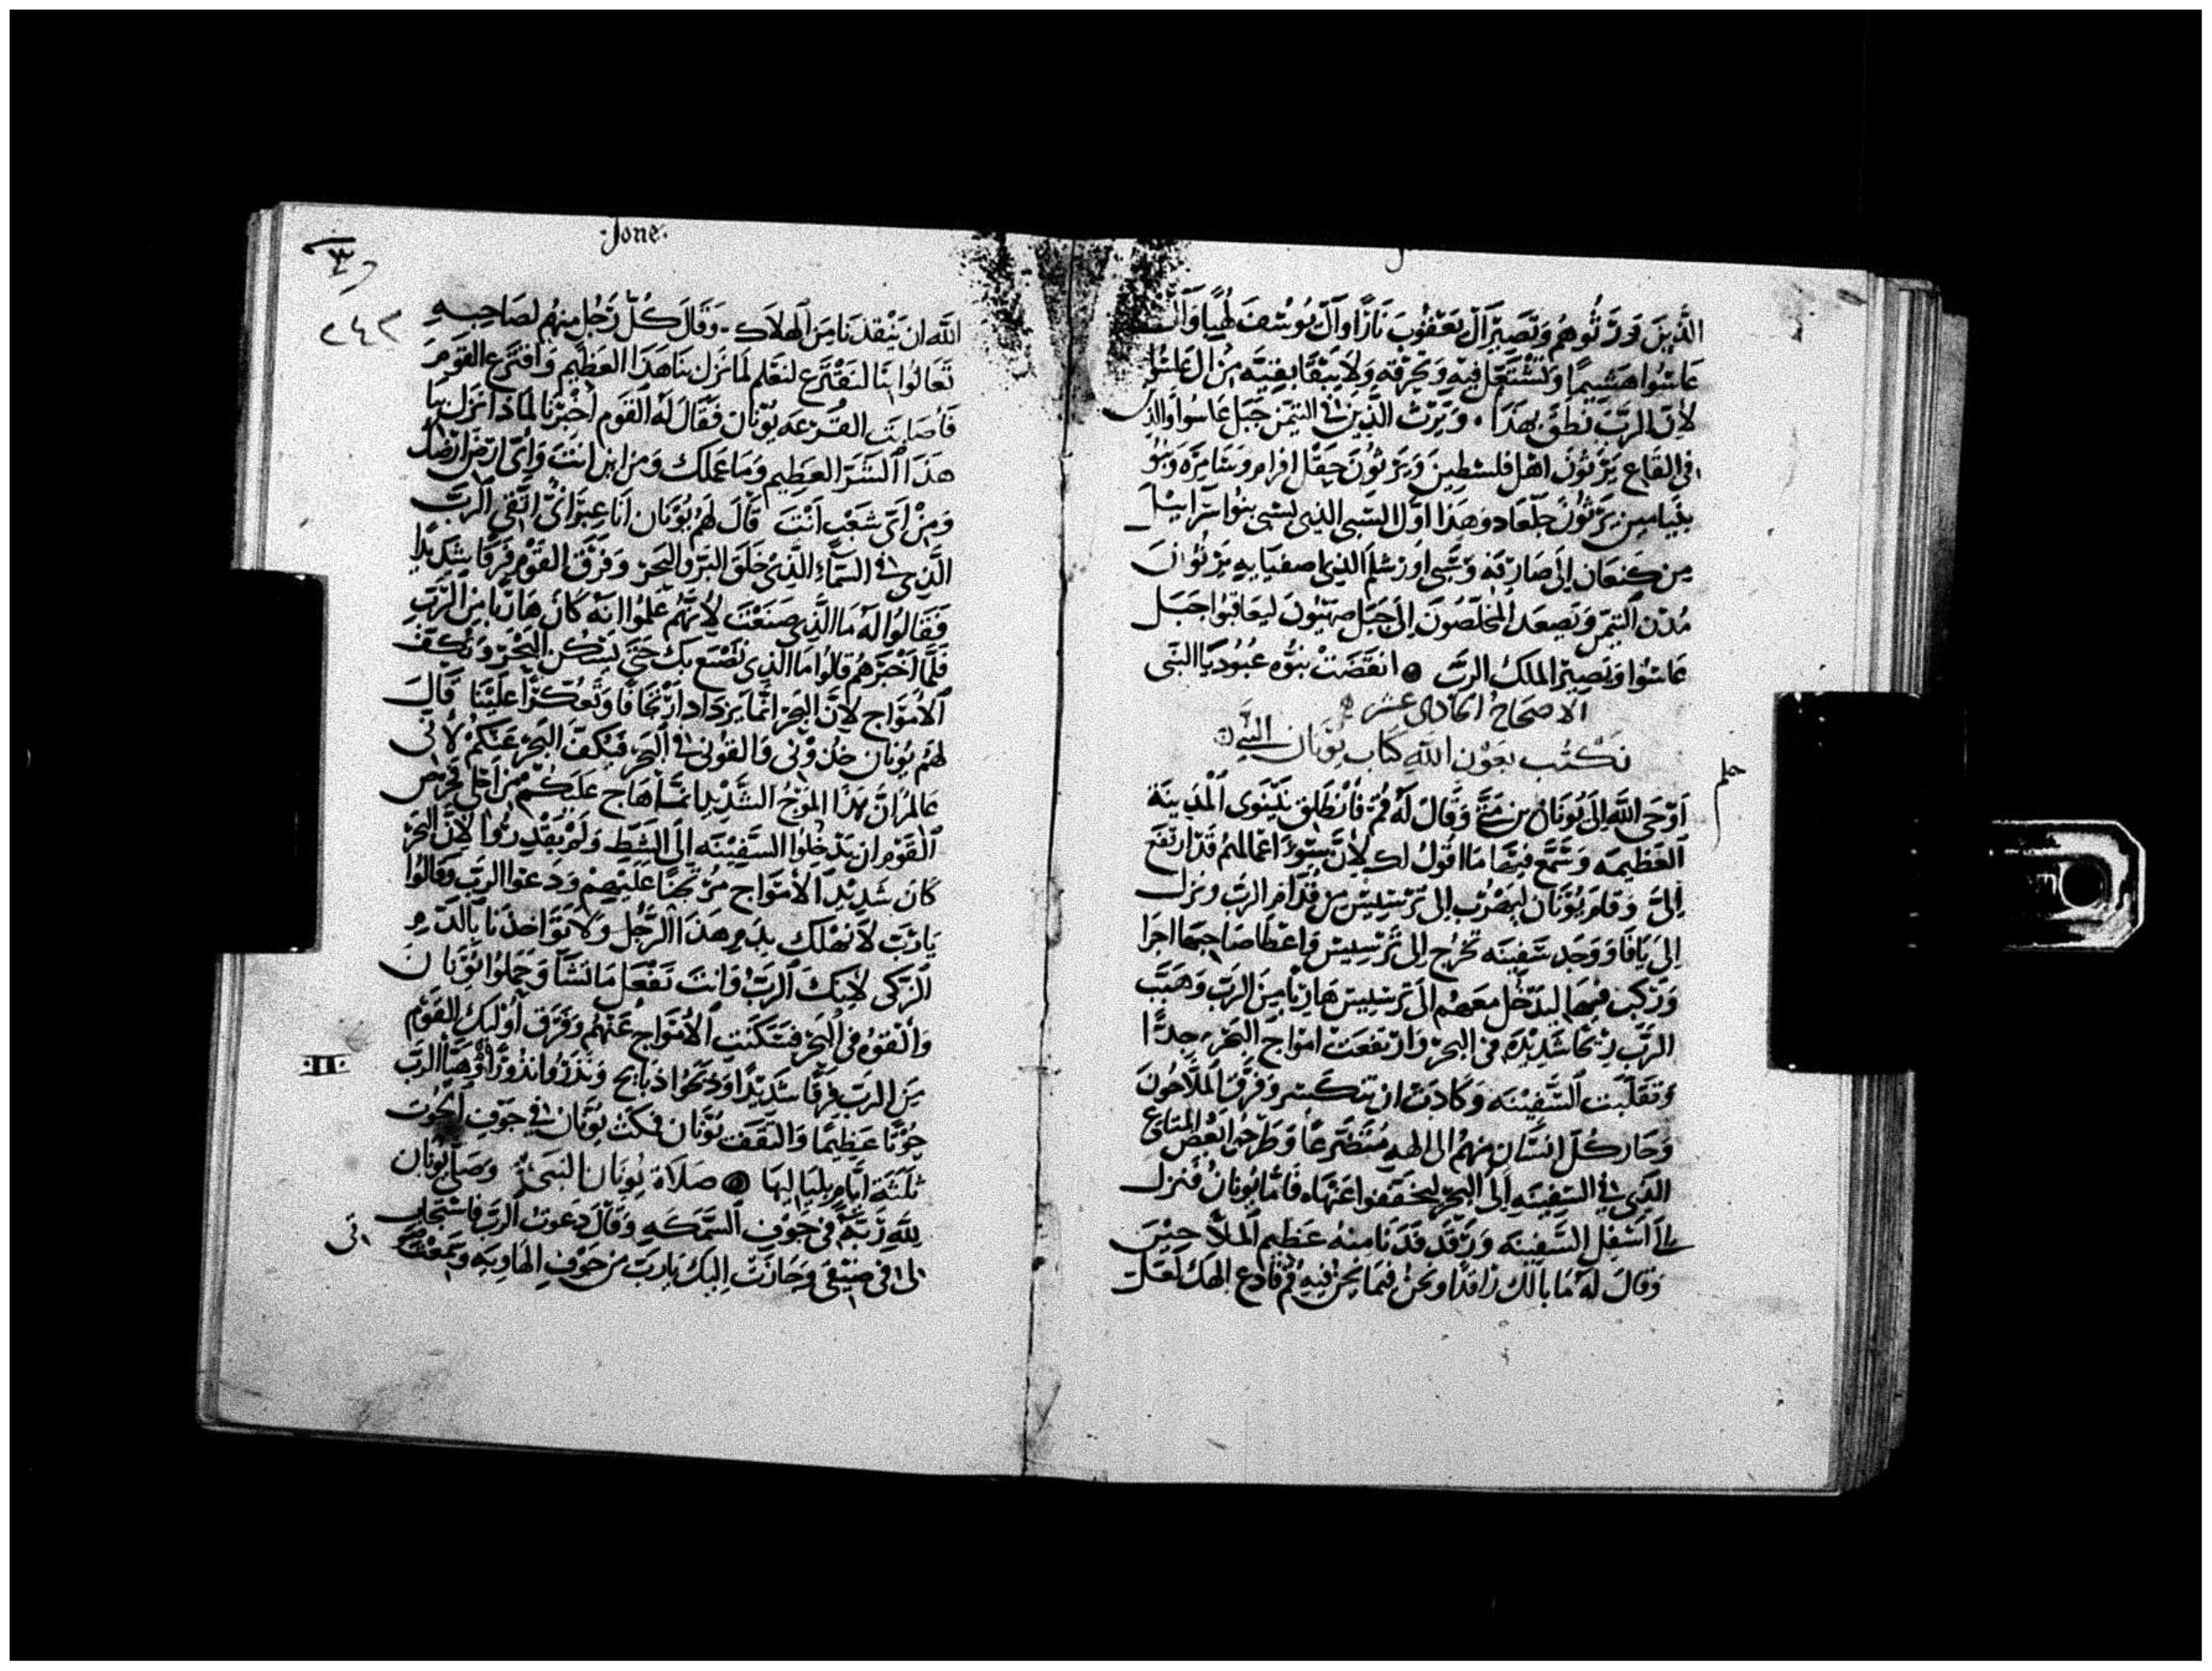 الَّذِينَ وَرَثُوهُم وَتَصِير اَل يَعقُوبَ نَارًا وَاَل يُوسُفَ لَهيبًا وَآلَ
عَاسُوا هَشيمًا وَتَشْتَعِل فيهِ وَتَحْرقهِ وَلَا يَبْقَا بَقيَه مِن ال عَاسُوا
لأن الرَبّ نَطَقَ بِهَذَا . وَيَرِث الذِين فى التيمن جَبَل عَاسوا والذي
فى القَاع يَرثونَ اهل فلسطِينَ وَيَرثُونَ حَقل افرام وسَامِرَه وَبَنُو
بنيامين يَرثُونَ جلعَاد وهَذَا اوّل السَبي الذِى لسَبي بنوا اسرَاييل
مِن كنعَان إلى صَارفَه وَسَبي اورَشلم الذِى اصفيَا بهِ يَرثُوانَ
مُدن التيمن وَتصعد المُخلصُونَ إلى جَبَل صهيُونَ ليعَاقبُوا جَبَل
عَاسُوا وَتصِير الملك الرَبّ ۞ انقضَتْ نبُوّه عبُوديَا النَبى
الاصحَاحُ الحَادِى عَشر
نَكْتُب بعَوْن الله كتَاب يُونَان النَّبى
حلم
اَوْحَى اللهُ إلَى يُونَان بن مَتَّى وَقَالَ لَه قُمْ فَانْطَلِق نَيْنَوى المَدِينَة
العَظيمَه وَسَمّع فيهَا مَا اقولُ لك لأنّ سُوْءَ اعْمَالهُم قَدْ ارتَفَع
إلَىّ وَقَامَ يُونَان ليَهْرُب إلى تَرْسِيسَ مِن قُدّام الرَبّ وَنزل
إلى يَافَا وَوَجد سَفِينَه تَخْرُج إلى تَرْسِيسَ وَاعْطَا صَاحِبهَا اجرَا
وَرَكِبَ فيهَا ليدْخل معَهُم إلى تَرسيسَ هَاربًا مِنَ الرَبّ وَهَبّ
الرَبّ رِيْحًا شَدِيْدَه فى البحر وَارْتفعَتْ امْوَاج البَحْر جِدًّا
وَتَقَلّبَت السَّفِيْنَه وَكَادَتْ ان تتكَسر وَفَرَق المَلّاحُونَ
وَجَار كُلّ انْسَان منهُم الى الهِهِ مُتَضرّعًا وَطَرَحوا بَعْض المتَاع
الذِى فى السَفِينَه إلى البحر ليخففوا عَنهَا ۞ فَامَّا يُونَانُ فَنزل
إلى اسْفل السَّفِينَه وَرَقَد فَدَنا منهُ عَظيم المَلّاحِيْن
وَقالَ لَهُ مَا بالك رَاقدًا ونحنُ فيمَا نحن فيهِ قم فادع الهَك لعَلّ
·Jone·
٢٤٢
الله ان يُنْقذنَا مِنَ الهلاك . وَقَالَ كُلُّ رَجُل مِنهُم لصَاحِبهِ
تَعَالُوا بنَا لنَقْتَرع لنَعْلم لمَا نَزَل بنَا هَذَا العَظيم وَاقتَرع القَوم
فَأصَابَت القُرْعَه يُونَان فَقَالَ لَهُ القَوم أخْبِرْنَا لماذَا نزَل بنَا
هَذَا الشَرّ العَظِيم وَمَا عَملك وَمِن اين انتَ وَأىّ ارْض ارْضكَ
وَمِنْ أىّ شَعْب أنْتَ قَالَ لَهُمْ يُوْنَان انَا عبْرَانى اتّقى الرَبّ
الذِى فى السَّمَاء الذِى خَلقَ البَرّ والبَحر وَفَرَق القَوْم فَرَقًا شَدِيدًا
فَقَالُوا لَهُ مَا الذِى صَنَعْتَ لأنّهُم عَلِمُوا انّه كَانَ هَاربًا مِنَ الرَبّ
فَلمَّا أخْبَرَهُم قالُوا مَا الذِى نَصْنَع بك حَتَّى يَسْكُن البَحْر وَتكُفّ
الامْوَاج لأنّ البَحر انّمَا يَزدَاد ارْتجَافًا وَتعكّرًا عَليْنَا قَالَ
لَهُم يُونَان خُذوْنِى وَالقونى فى البَحر فَيَكُفّ البَحر عَنكُم لأنّى
عَالمُ انّ هَذَا المَوْجُ الشَّدِيْد انمَا هَاج عَليْكُم مِن اجْلى فَحَرَصَ
القَوْم ان يَدْخِلُوا السَّفِيْنَه إلى الشَطّ وَلَمْ يَقْدِرُوا لأنّ البَحْر
كَانَ شَدِيْد الأمْوَاج مُرْتَجًّا عَلَيْهِمْ وَدَعَوْا الرَبّ وَقَالُوا
يَارَبّ لا تُهْلك بدَم هَذَا الرَّجُل وَلَا تُؤاخذنَا بالدَّم
الزّكى لأنكَ الرَبّ وَانتَ تَفْعَل مَا تشَآ وَحملُوا يُوْنَان
وَالْقوْهُ فى البَحر فَسَكَنَت الأمْوَاج عَنْهُم وَفَرَق اُولَيكَ القَوْم
مِنَ الرَبّ فَرَقًا شَدِيْدًا وَذبَحُوا ذبَايح وَنَذَرُوا نذُوْرًا وَهيَّأ الرَبّ
حُوْتًا عَظِيمًا وَالتَقَفَ يُونَان فمكَث يُونَان فى جَوْفِ الحُوْت
ثَلثَة ايَّام بليَاليهَا ۞ صَلَاة يُونَان النَبىّ وَصَلى يُونَان
للهِ رَبّهُ فى جَوْفِ السَّمَكَهِ وَقَالَ دعَوتُ الرَبّ فاسْتجَابَ
لى فى ضيْقى وَجَارَتُ إليكَ يارَبّ مِن جَوْف الهَاوِيه وسَمعْتَ
·II·